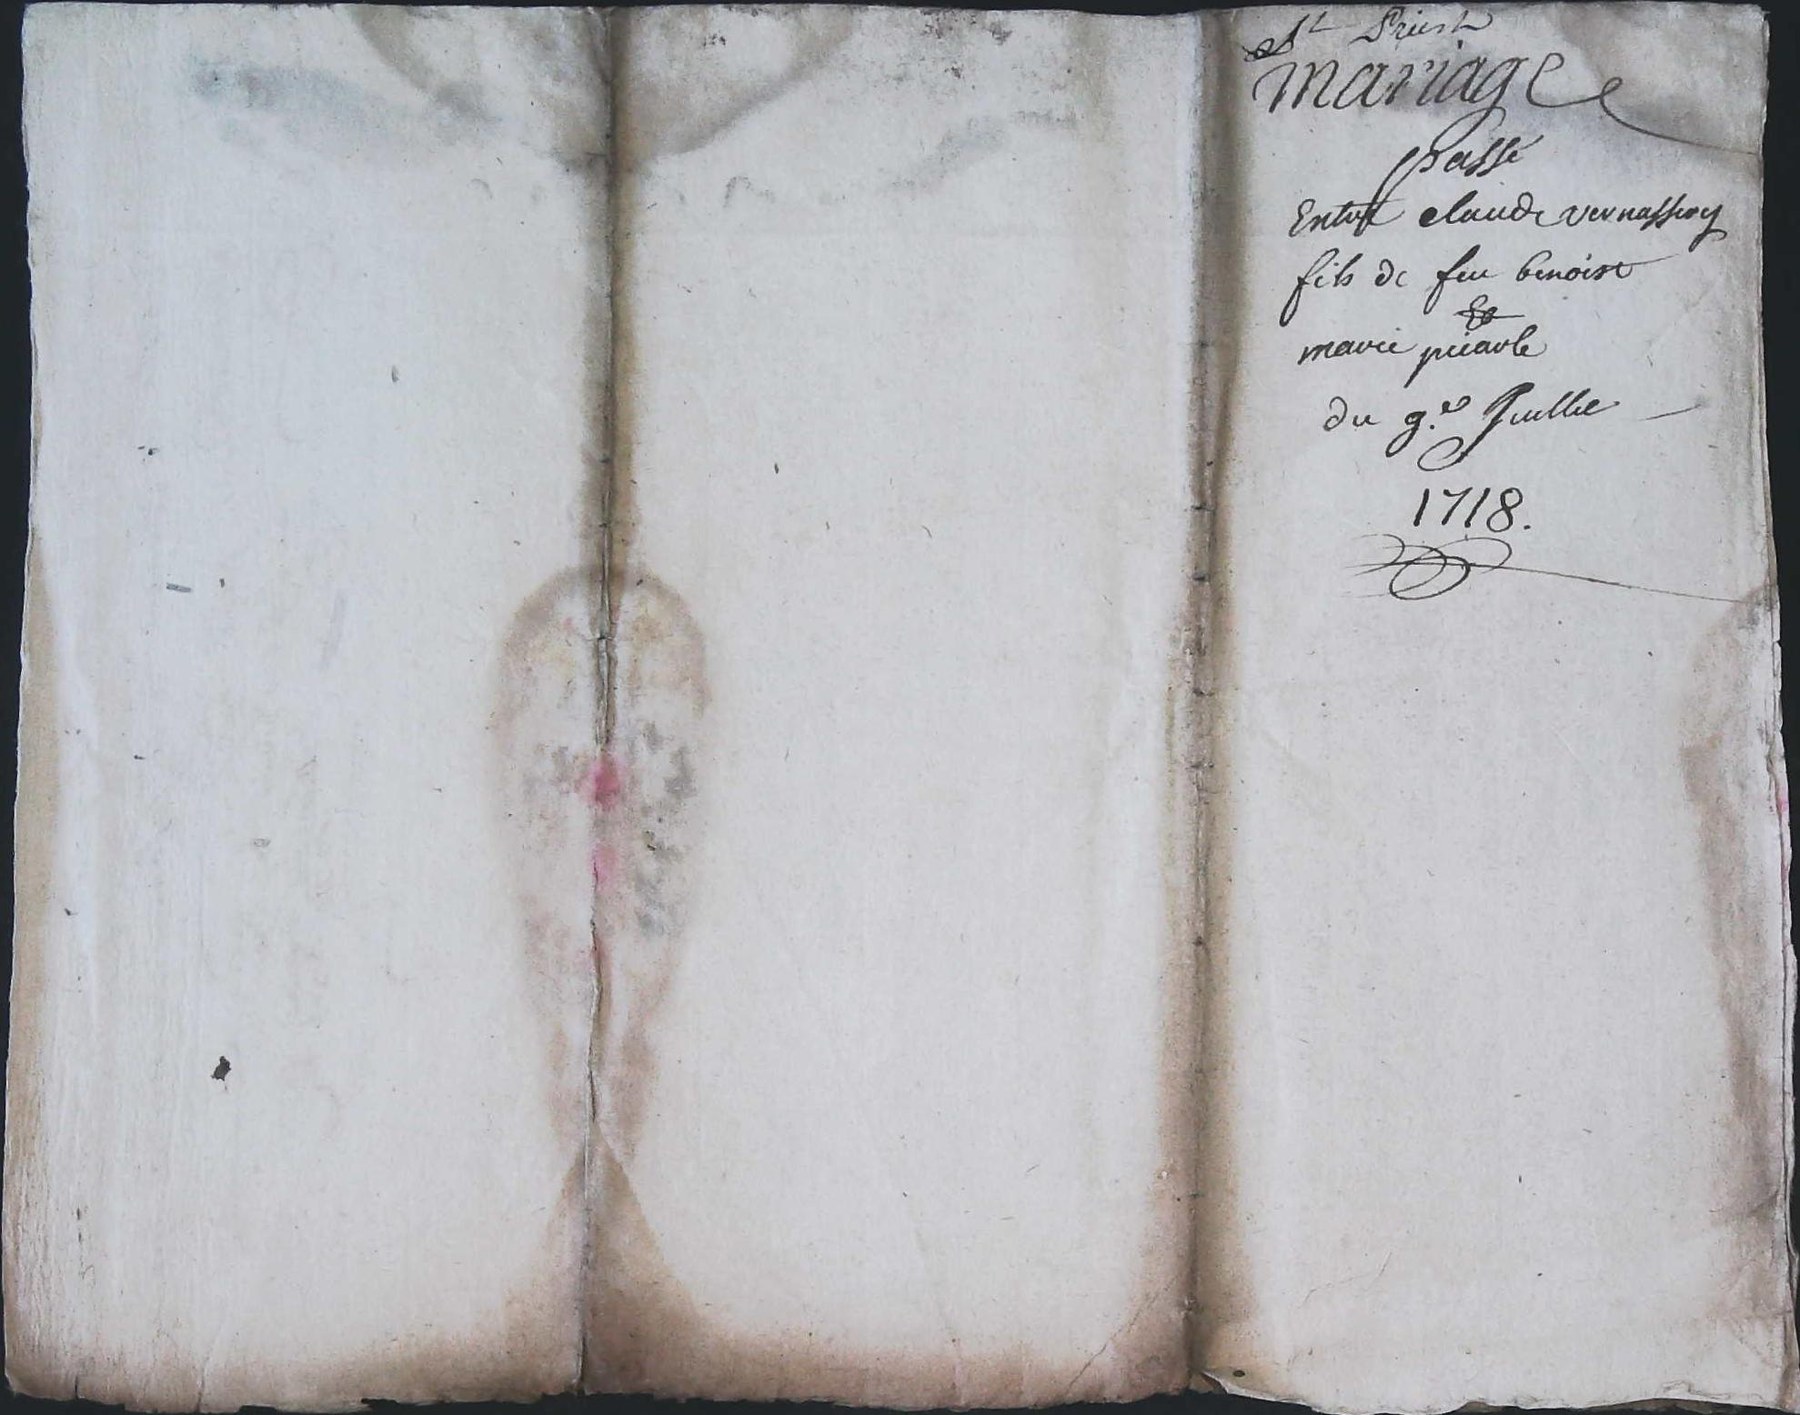 St Priest
mariage
passé
Entre claude vernassiery
fils de feu benoist
&
marie picarle
du 9.e Juillie
1718.